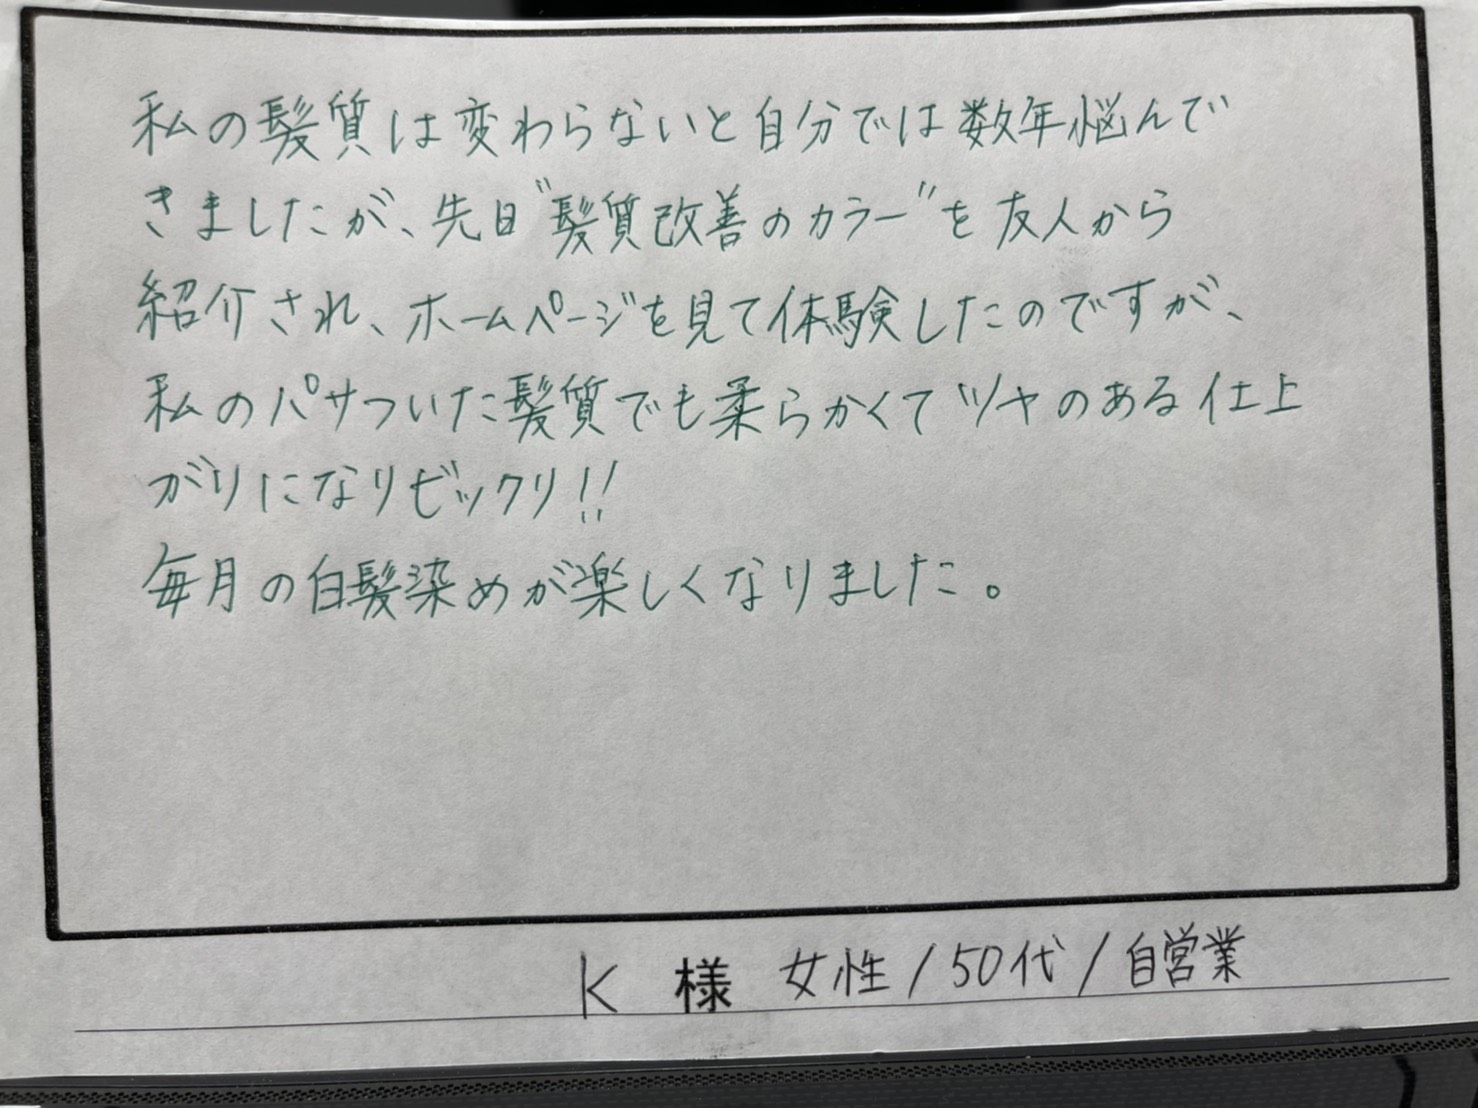 私の髪質は変わらないと自分では数年悩んで
きましたが、先日"髪質改善のカラー"を友人から
紹介され、ホームページを見て体験したのですが、
私のパサついた髪質でも柔らかくてツヤのある仕上
がりになりビックリ!!
毎月の白髪染めが楽しくなりました。
K 様 女性/50代/自営業